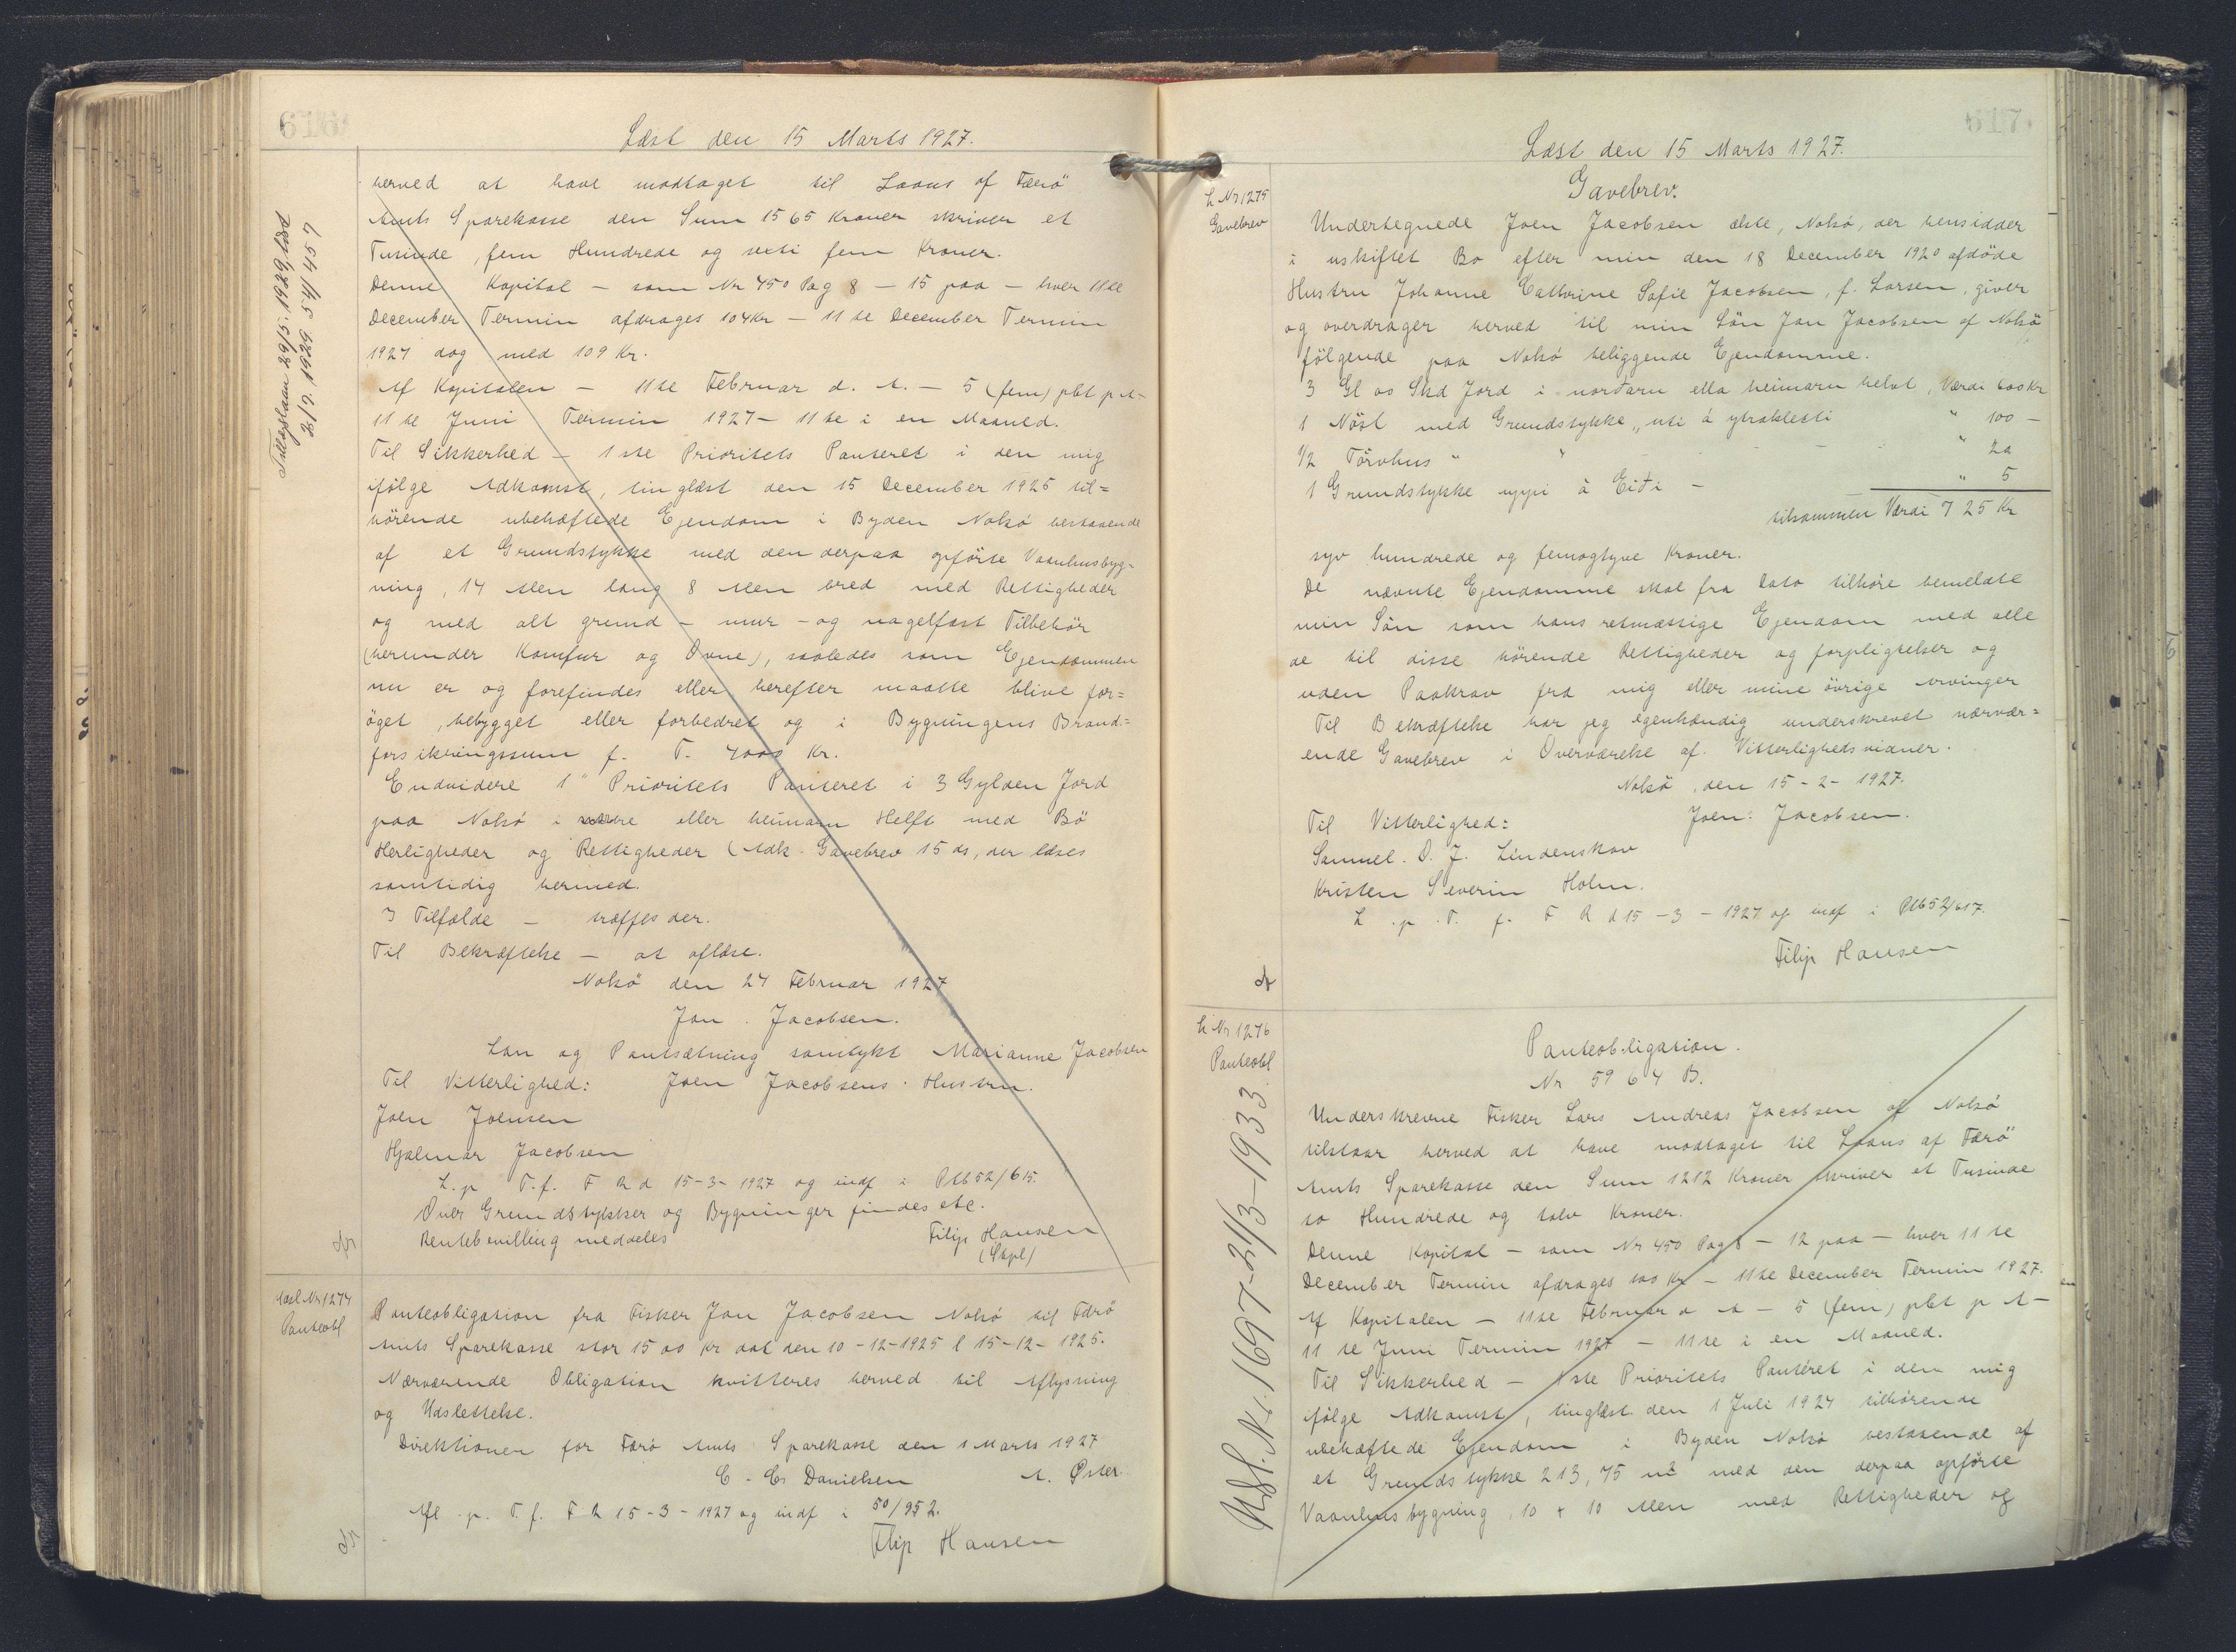 616
Læst den 15 Marts 1927.
herved at have modtaget til Laans af Færö
Amts Sparekasse den Sum 1565 Kroner skriver et
Tusinde, fem Hundrede og sexti fem Kroner.
Denne Kapital – som Nr 450 Pag 8 – 15 paa – hver 11te
December Termin afdrages 104 Kr – 11te December Termin
1927 dog med 109 Kr.
Af Kapitalen – 11te Februar d. A. – 5 (fem) pbt p A –
11te Juni Termin 1927 – 11te i en Maaned.
Til Sikkerhed – 1ste Prioritets Panteret i den mig
ifölge Adkomst, tinglæst den 15 December 1925 til=
hörende ubehæftede Ejendom i Byden Nolsö bestaaende
af et Grundstykke med den derpaa opförte Vaanhusbyg=
ning, 14 Alen lang 8 Alen bred med Rettigheder
og med alt grund – mur – og nagelfast Tilbehör
(herunder Komfur og Ovne), saaledes som Ejendommen
nu er og forefindes eller herefter maatte blive for=
öget, bebygget eller forbedret og i Bygningens Brand=
forsikringssum f. T. 4000 Kr.
Endvidere 1" Prioritets Panteret i 3 Gylden Jord
paa Nolsö i eller heimarn Helft med Bö
Herligheder og Rettigheder (Adk. Gavebrev 15 ds, der læses
samtidig hermed.
I Tilfælde – træffes der.
Til Bekræftelse – at aflæse.
Nolsö den 24 Februar 1927
Jan. Jacobsen.
Lan og Pantsætning samtykt Marianne Jacobsen
Til Vitterlighed: Joen Jacobsens. Hustru.
Joen Joensen
Hjalmar Jacobsen
L. p T. f. F R d 15-3-1927 og indf i Ptb 52/615.
Over Grundstykker og Bygninger findes etc.
Rentebevilling meddeles Filip Hansen
(Skpl)
Tillægslaan
L 554 1/5 4554
Aasl. Nr 1274
Panteobl
Panteobligation fra Fisker Jan Jacobsen Nolsö til Færö
Amts Sparekasse stor 1500 Kr dat den 10-12-1925 l 15-12-1925.
Nærværende Obligation kvitteres herved til Aflysning
og Udslettelse.
Direktionen for Færö Amts Sparekasse den 1 Marts 1927
C. Cs Danielsen A. Öster.
Afl. p. T. f. F R 15-3-1927 og indf i 50/952.
Filip Hansen
617
Læst den 15 Marts 1927.
L Nr 1275
Gavebrev
Gavebrev.
Undertegnede Joen Jacobsen ælste, Nolsö, der hensidder
i uskiftet Bo efter min den 18 December 1920 afdöde
Hustru Johanne Cathrine Sofie Jacobsen, f. Larsen, giver
og overdrager herved til min Sön Jan Jacobsen af Nolsö
fölgende paa Nolsö beliggende Ejendomme.
3 Gl 00 Skd Jord i norðarn ella heimarn helvt, Værdi 600 Kr
1 Nöst med Grundstykke, uti á ytraklesti " 100 –
1/2 Törvhus " " – " 20
1 Grundstykke uppi à Eiði – " 5
tilsammen Værdi 725 Kr
syv hundrede og femogtyve Kroner.
De nævnte Ejendomme skal fra Dato tilhöre bemeldte
min Sön som hans retmæssige Ejendom med alle
de til disse hörende Rettigheder og forpligtelser og
uden Paakrav fra mig eller mine övrige Arvinger
Til Bekræftelse har jeg egenhændig underskrevet nærvær=
ende Gavebrev i Overværelse af Vitterlighedsvidner.
Nolsö, den 15-2-1927.
Til Vitterlighed: Joen: Jacobsen.
Samuel. D. J. Lindenskov
Kristen Severin Holm.
L. p. T. f. F R d 15-3-1927 og indf i Ptb 52/617.
Filip Hansen
L Nr 1276
Panteobl
Udsl. Nr. 1697-21/3-1933
Panteobligation.
Nr 5964 B.
Underskrevne Fisker Lars Andreas Jacobsen af Nolsö
tilstaar herved at have modtaget til Laans af Færö
Amts Sparekasse den Sum 1212 Kroner skriver et Tusinde
to Hundrede og tolv Kroner.
Denne Kapital – som Nr 450 Pag 8 – 12 paa – hver 11te
December Termin afdrages 100 Kr – 11te December Termin 1927.
Af Kapitalen – 11te Februar d A – 5 (fem) pbt p A –
11te Juni Termin 1927 – 11te i en Maaned.
Til Sikkerhed – 1ste Prioritets Panteret i den mig
ifölge Adkomst, tinglæst den 1 Juli 1924 tilhörende
ubehæftede Ejendom i Byden Nolsö bestaaende af
et Grundstykke 213,75 m² med den derpaa opförte
Vaanhusbygning, 10 + 10 Alen med Rettigheder og